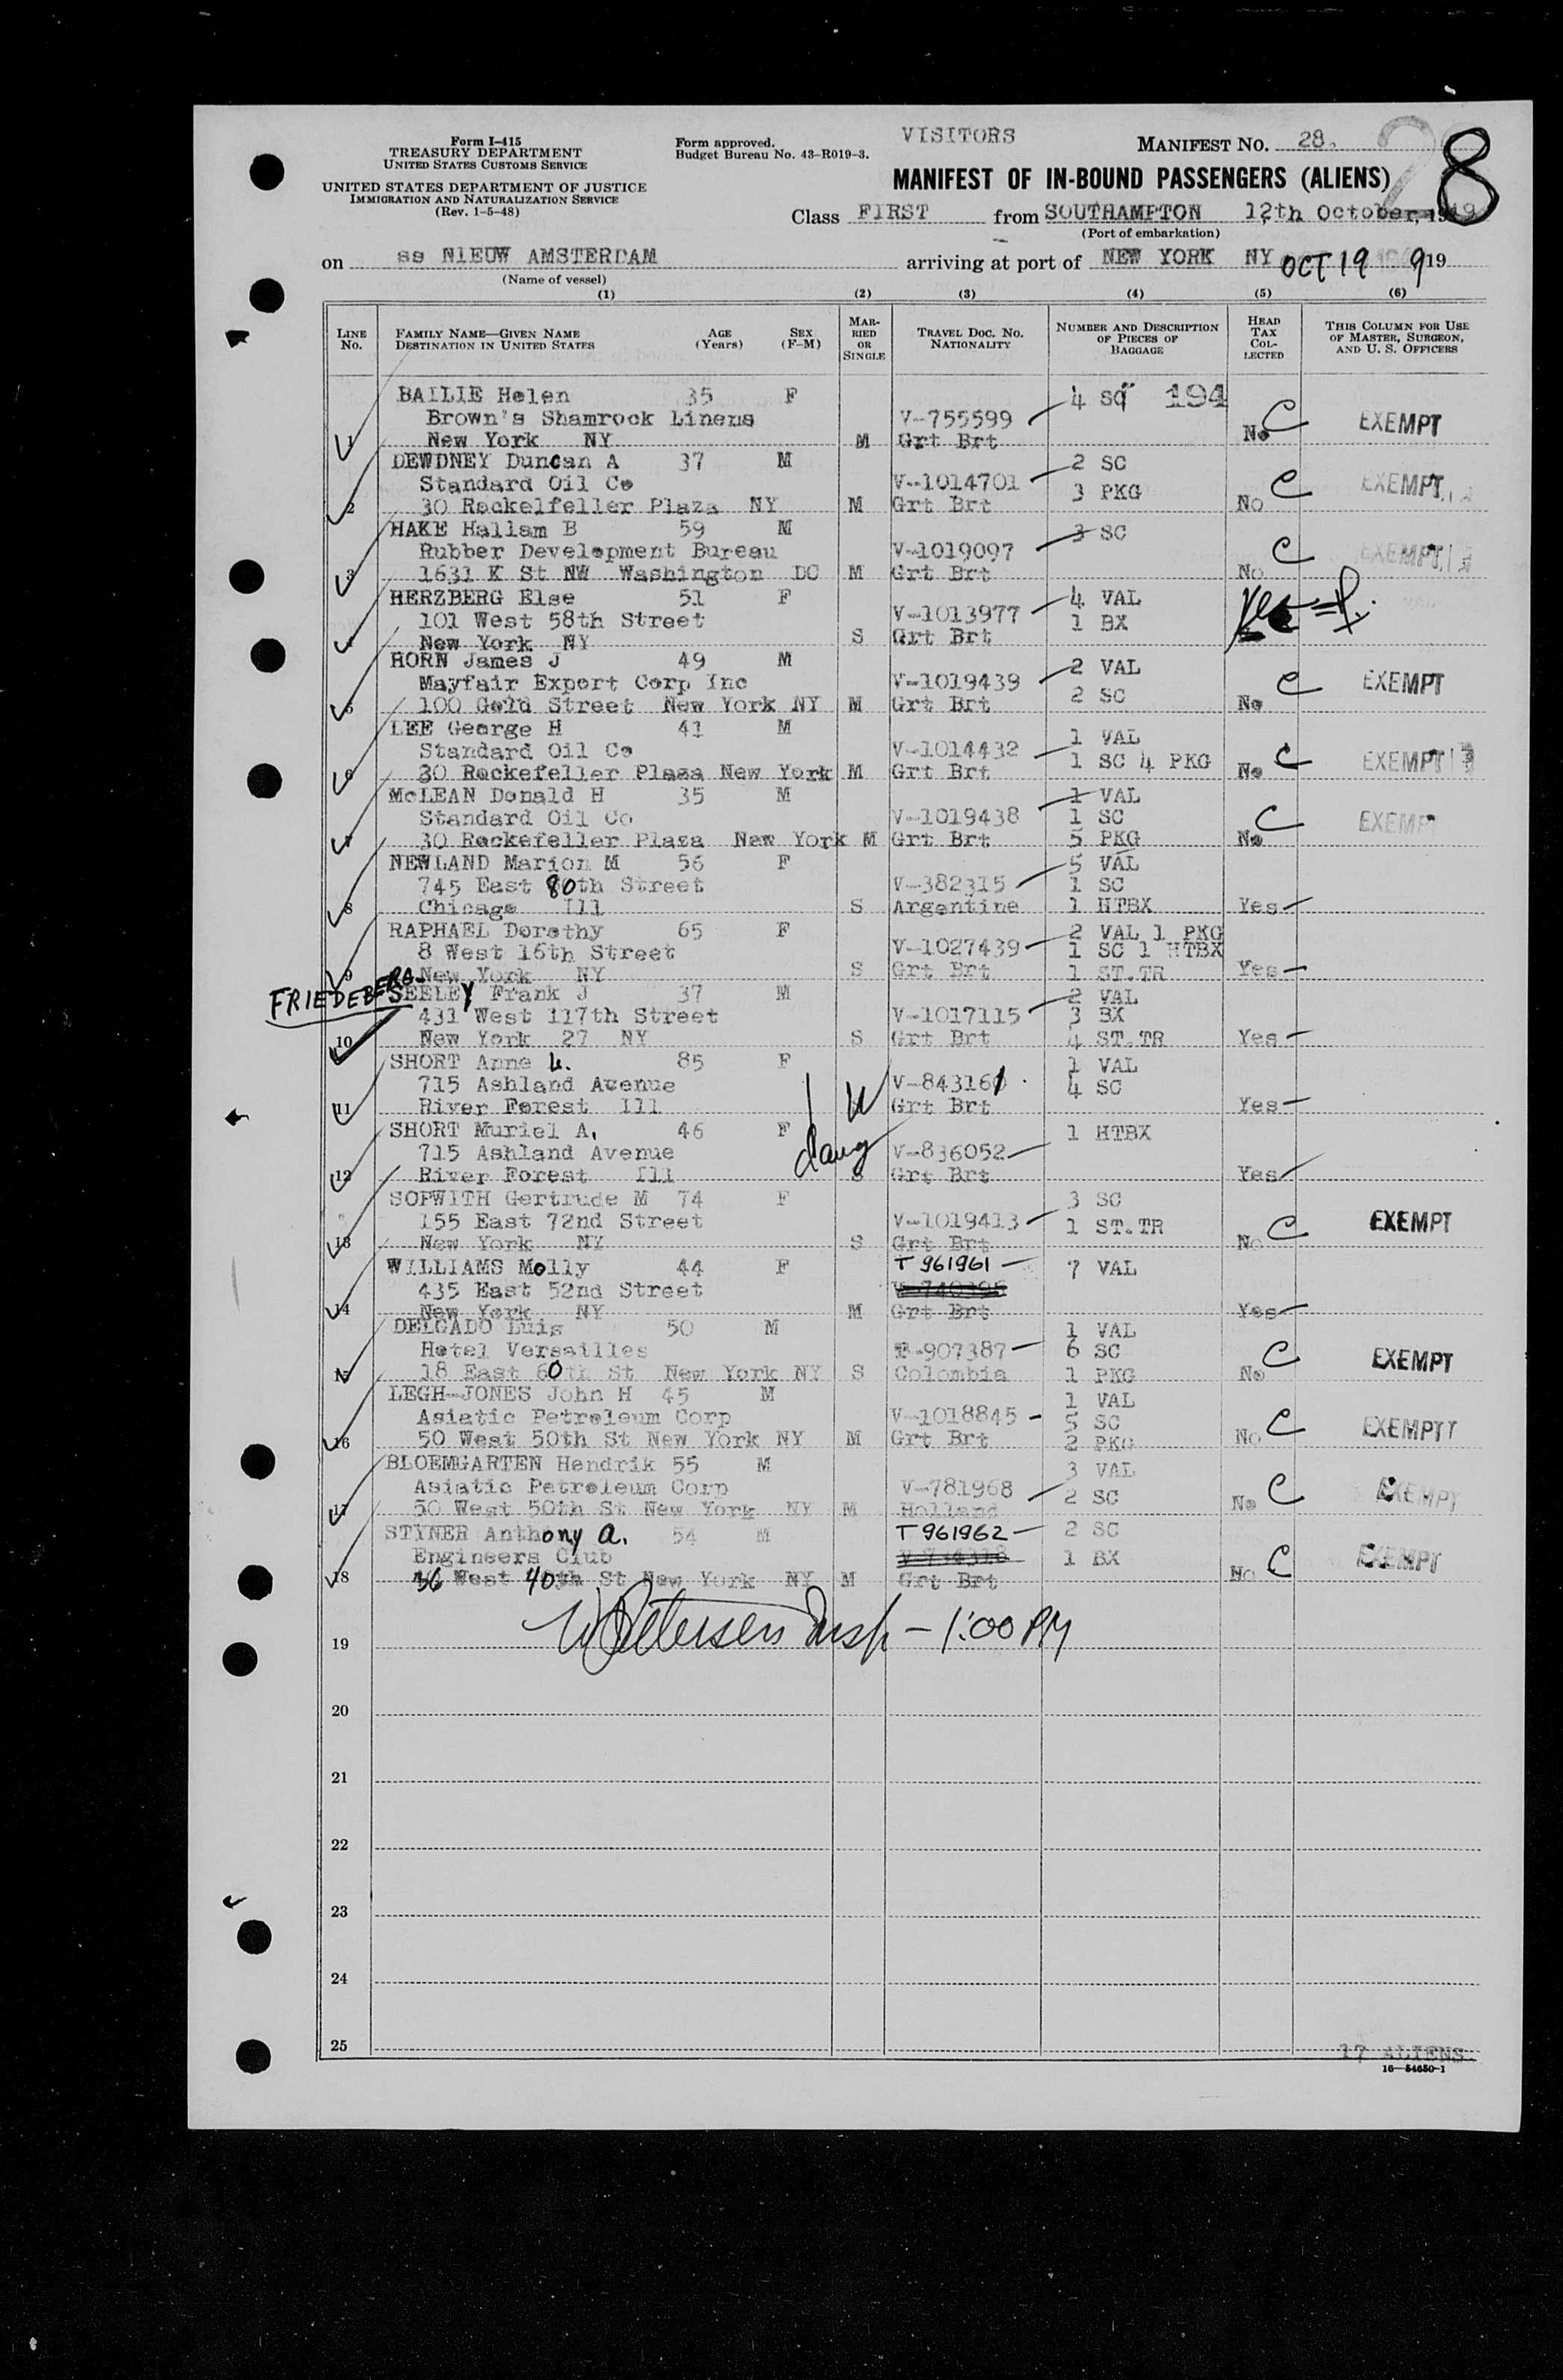 Form I-415
TREASURY DEPARTMENT
UNITED STATES CUSTOMS SERVICE
UNITED STATES DEPARTMENT OF JUSTICE
IMMIGRATION AND NATURALIZATION SERVICE
(Rev. 1-5-48)
Form approved.
Budget Bureau No. 43-R019-3.
VISITORS
MANIFEST NO. 28.
28
MANIFEST OF IN-BOUND PASSENGERS (ALIENS)
Class FIRST from SOUTHAMPTON 12th October, 1949
(Port of embarkation)
on ss NIEUW AMSTERDAM arriving at port of NEW YORK NY OCT 19 9 19
(Name of vessel)
(1) (2) (3) (4) (5) (6)
LINE No. FAMILY NAME—GIVEN NAME DESTINATION IN UNITED STATES AGE (Years) SEX (F-M) MARRIED OR SINGLE TRAVEL DOC. NO. NATIONALITY NUMBER AND DESCRIPTION OF PIECES OF BAGGAGE HEAD TAX COLLECTED THIS COLUMN FOR USE OF MASTER, SURGEON, AND U. S. OFFICERS
BAILIE Helen 35 F 4 SC 194
Brown's Shamrock Linens V-755599 EXEMPT
1 New York NY M Grt Brt No C
DEWDNEY Duncan A 37 M 2 SC
Standard Oil Co V-1014701 3 PKG EXEMPT
2 30 Rockelfeller Plaza NY M Grt Brt No C
HAKE Hallam B 59 M 3 SC
Rubber Development Bureau V-1019097 EXEMPT
3 1631 K St NW Washington DC M Grt Brt No C
HERZBERG Else 51 F 4 VAL
101 West 58th Street V-1013977 1 BX Yes
4 New York NY S Grt Brt
HORN James J 49 M 2 VAL
Mayfair Export Corp Inc V-1019439 2 SC EXEMPT
5 100 Gold Street New York NY M Grt Brt No C
LEE George H 41 M 1 VAL
Standard Oil Co V-1014432 1 SC 4 PKG EXEMPT
6 30 Rockefeller Plaza New York M Grt Brt No C
McLEAN Donald H 35 M 1 VAL
Standard Oil Co V-1019438 1 SC EXEMPT
7 30 Rockefeller Plaza New York M Grt Brt 5 PKG No C
NEWLAND Marion M 56 F 5 VAL
745 East 80th Street V-382315 1 SC
8 Chicago Ill S Argentine 1 HTBX Yes
RAPHAEL Dorothy 65 F 2 VAL 1 PKG
8 West 16th Street V-1027439 1 SC 1 HTBX
9 New York NY S Grt Brt 1 ST.TR Yes
FRIEDEBERG-SEELEY Frank J 37 M 2 VAL
431 West 117th Street V-1017115 3 BX
10 New York 27 NY S Grt Brt 4 ST.TR Yes
SHORT Anne 85 F 1 VAL
715 Ashland Avenue V-843161 4 SC
11 River Forest Ill W Grt Brt Yes
SHORT Muriel A. 46 F daug 1 HTBX
715 Ashland Avenue V-836052
12 River Forest Ill S Grt Brt Yes
SOPWITH Gertrude M 74 F 3 SC
155 East 72nd Street V-1019413 1 ST.TR EXEMPT
13 New York NY S Grt Brt No C
WILLIAMS Molly 44 F T 961961 7 VAL
435 East 52nd Street
14 New York NY M Grt Brt Yes
DELGADO Luis 50 M 1 VAL
Hotel Versailles 907387 6 SC EXEMPT
15 18 East 60th St New York NY S Colombia 1 PKG No C
LEGH-JONES John H 45 M 1 VAL
Asiatic Petroleum Corp V-1018845 5 SC EXEMPT
16 50 West 50th St New York NY M Grt Brt 2 PKG No C
BLOEMGARTEN Hendrik 55 M 3 VAL
Asiatic Petroleum Corp V-781968 2 SC EXEMPT
17 50 West 50th St New York NY M Holland No C
STYNER Anthony A. 54 M T 961962 2 SC
Engineers Club 1 BX EXEMPT
18 West 40th St New York NY M Grt Brt No C
W Petersen Insp - 1:00 PM
19
20
21
22
23
24
25
17 ALIENS
16—54650-1